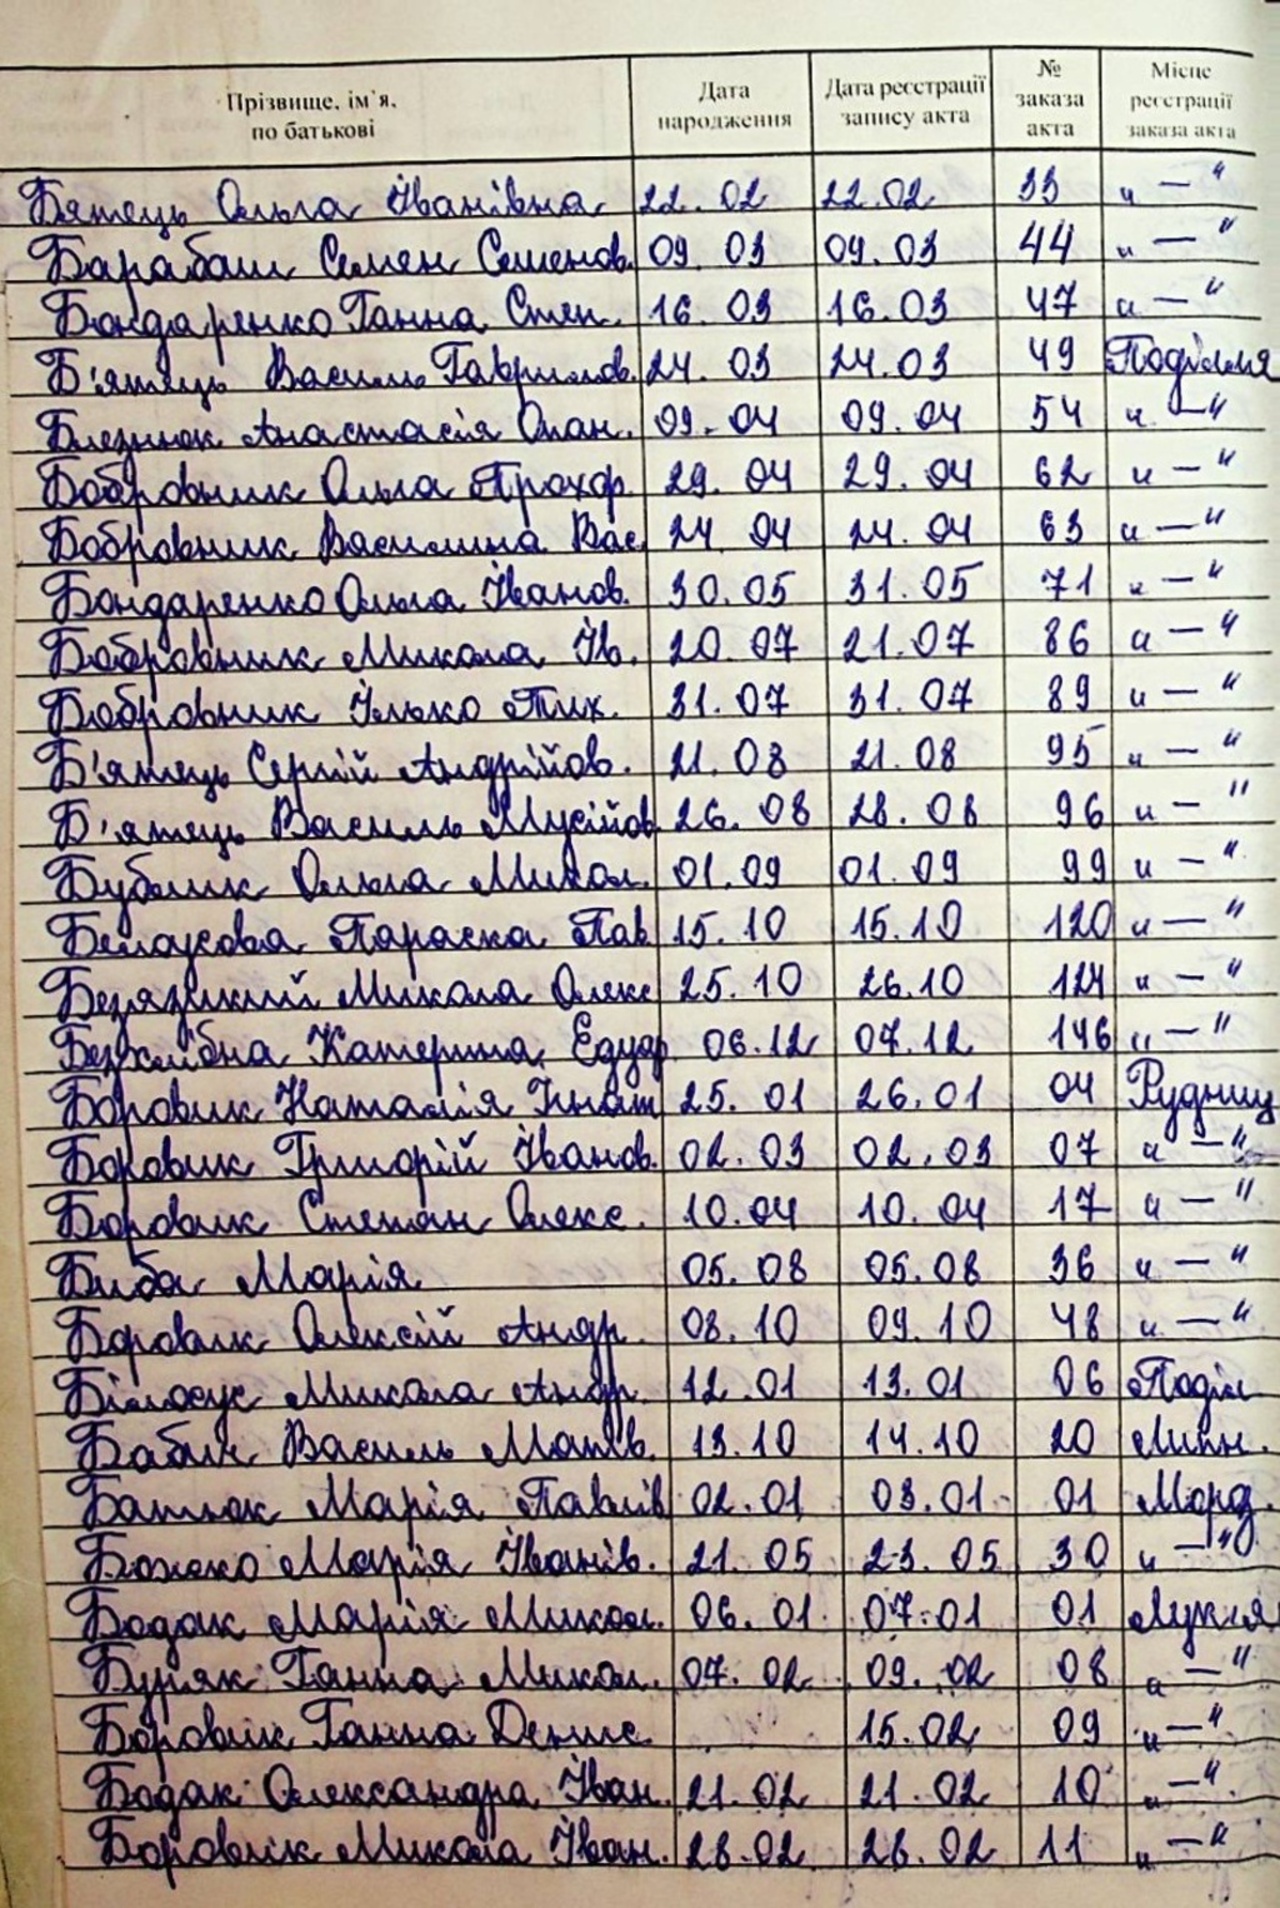 Прізвище, ім'я, по батькові | Дата народження | Дата реєстрації запису акта | № заказа акта | Місце реєстрації заказа акта
Бятець Ольга Іванівна 22.02 22.02 33 „ — "
Барабаш Семен Семенов. 09.03 09.03 44 „ — "
Бондаренко Ганна Степ. 16.03 16.03 47 „ — "
Б'ятець Василь Гаврилов. 24.03 24.03 49 Поділля
Блезнюк Анастасія Опан. 09.04 09.04 54 „ — "
Бобровник Ольга Прохор. 29.04 29.04 62 „ — "
Бобровник Василина Вас. 24.04 24.04 63 „ — "
Бондаренко Ольга Іванов. 30.05 31.05 71 „ — "
Бобровник Микола Ів. 20.07 21.07 86 „ — "
Бобровник Ілько Тих. 31.07 31.07 89 „ — "
Б'ятець Сергій Андрійов. 21.08 21.08 95 „ — "
Б'ятець Василь Мусійов 26.08 28.08 96 „ — "
Бублик Ольга Микол. 01.09 01.09 99 „ — "
Белоусова Параска Пав 15.10 15.10 120 „ — "
Безязикий Микола Олекс 25.10 26.10 124 „ — "
Безхлібна Катерина Едуар 06.12 07.12 146 „ — "
Боровик Наталія Ігнат 25.01 26.01 04 Рудниц
Боровик Григорій Іванов. 02.03 02.03 07 „ — "
Боровик Степан Олекс. 10.04 10.04 17 „ — "
Биба Марія 05.08 05.08 36 „ — "
Боровик Олексій Андр. 08.10 09.10 48 „ — "
Білоус Микола Андр. 12.01 13.01 06 Поділ
Бабич Василь Матв. 13.10 14.10 20
Марія Павлів 02.01 03.01 01 Морд.
Божко Марія Іванів. 21.05 23.05 30 „ — "
Бодак Марія Микол. 06.01 07.01 01 Лукя
Буряк Ганна Микол. 07.02 09.02 08 „ — "
Боровик Ганна Денис. 15.02 09 „ — "
Бодак Олександра Іван. 21.02 21.02 10 „ — "
Боровік Микола Іван. 28.02 28.02 11 „ — "